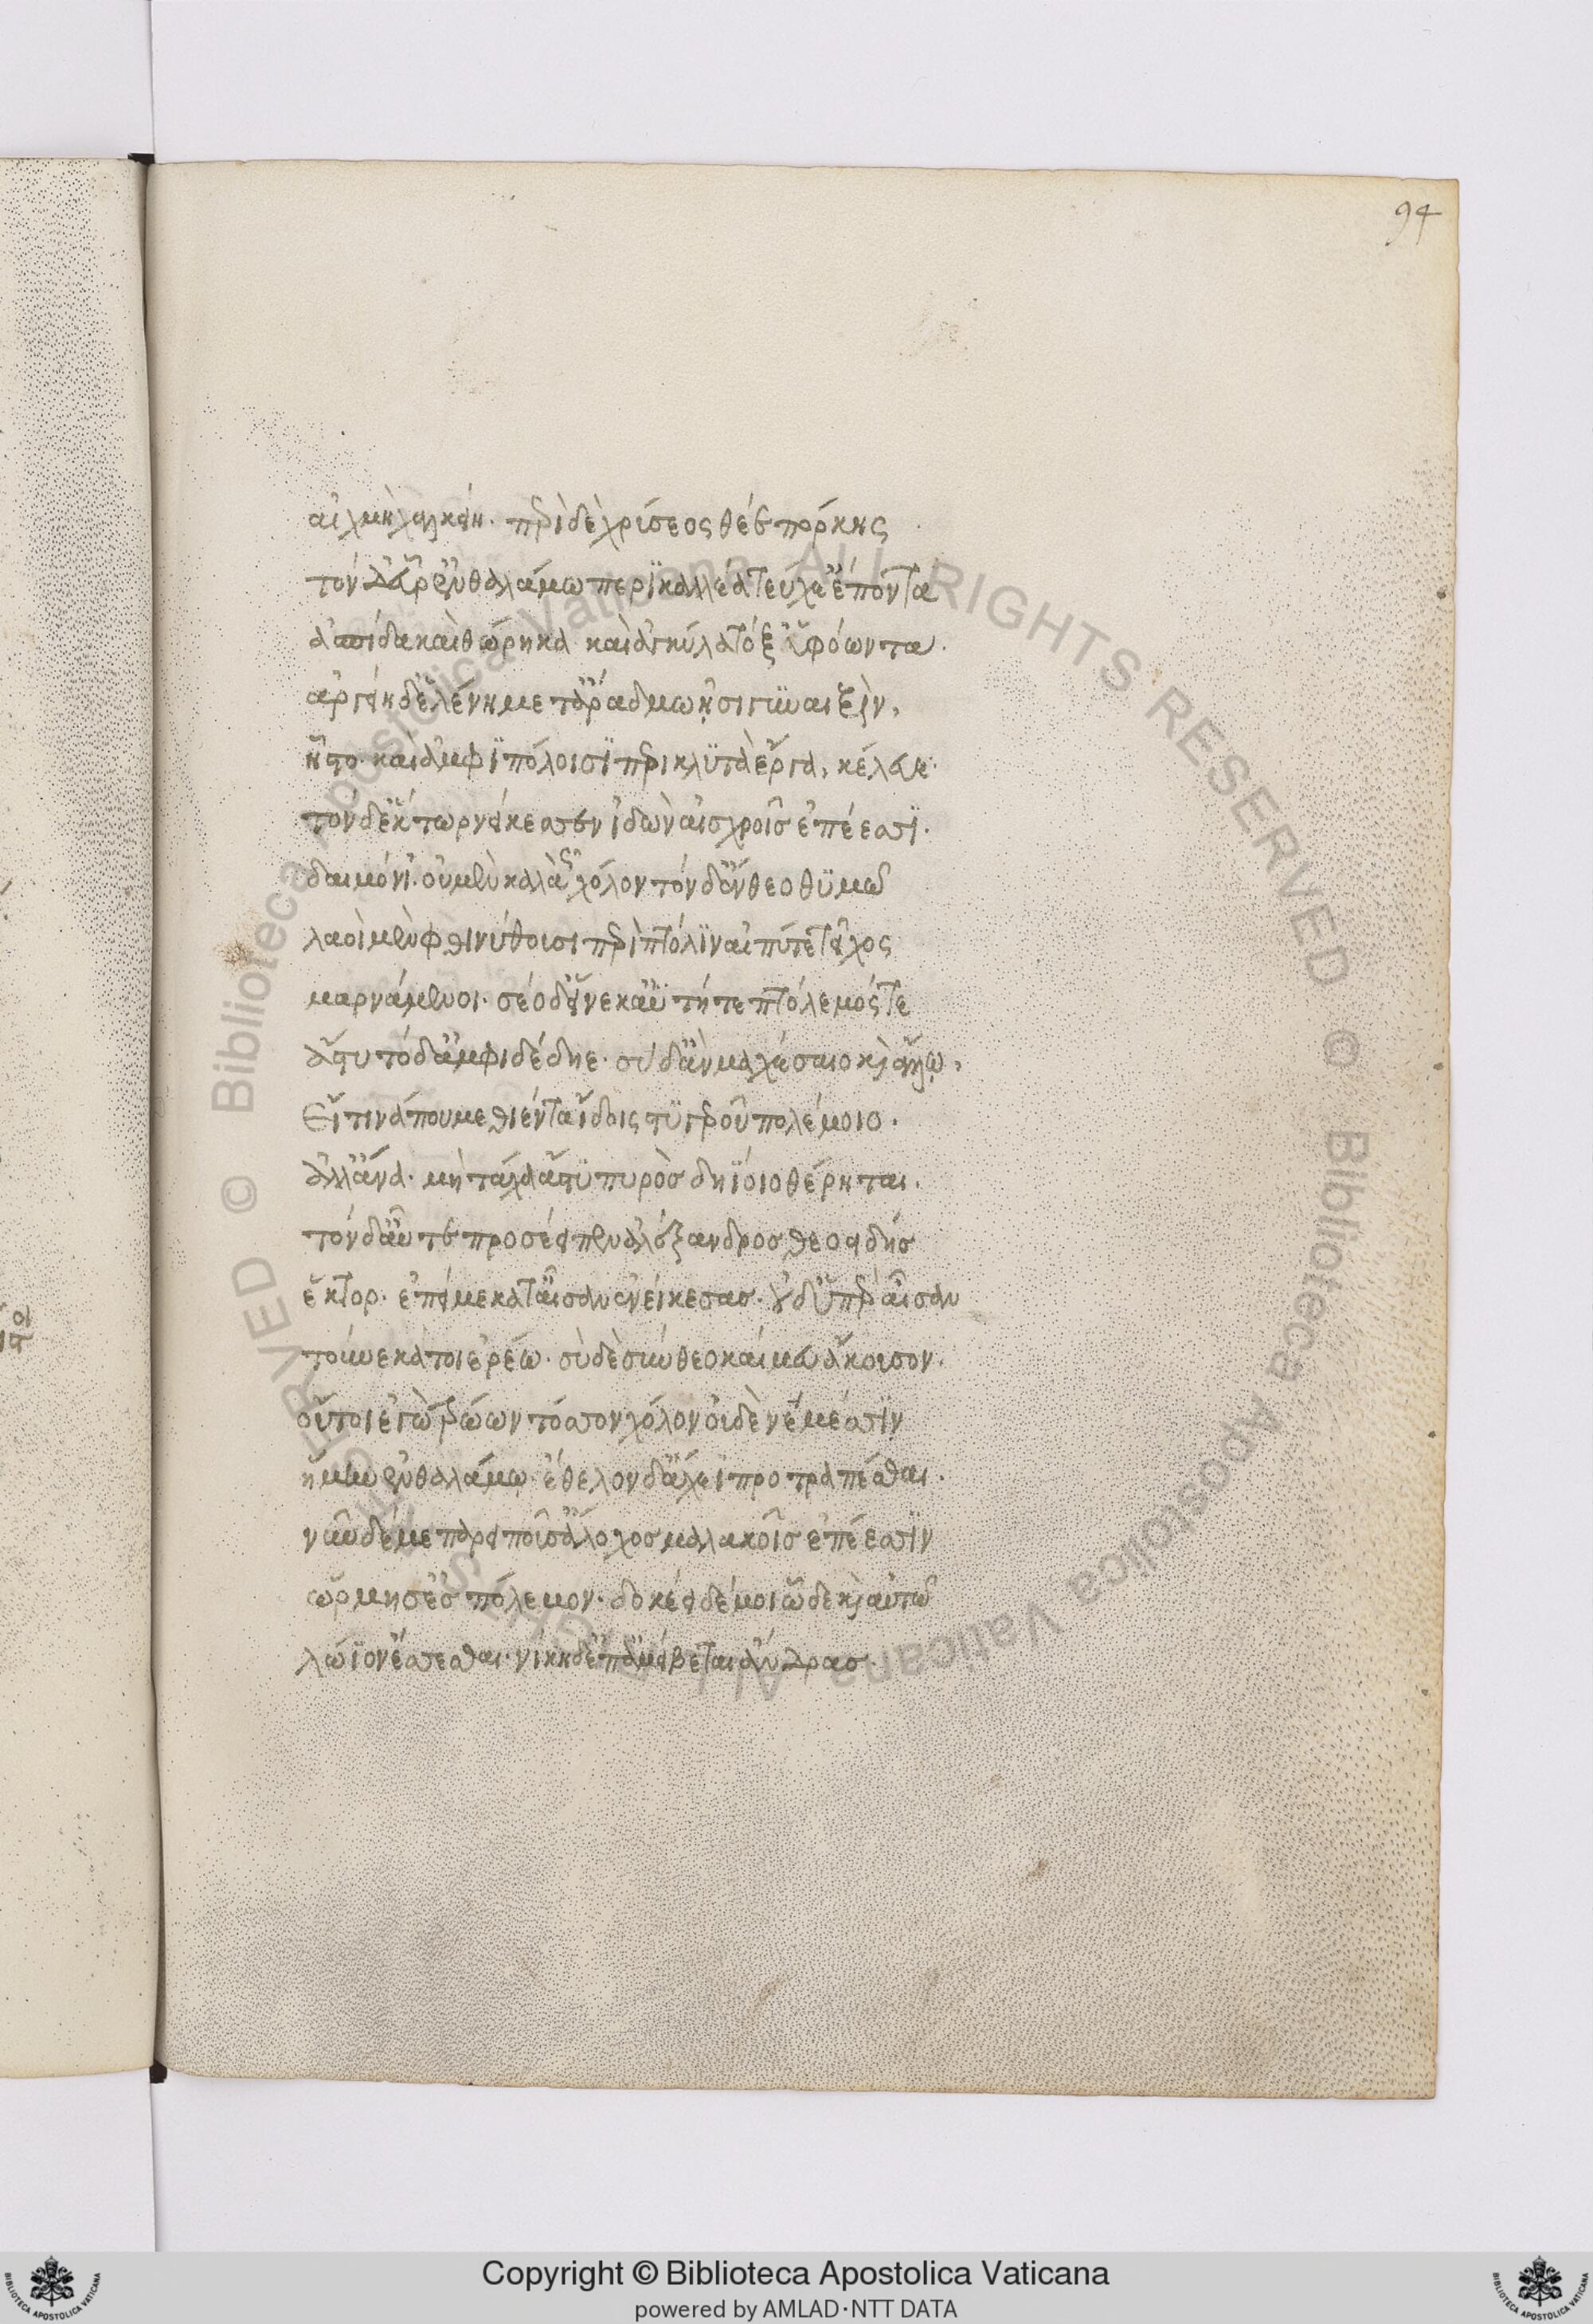 94
αἰχμὴ χαλκείη. περὶ δὲ χρύσεος θέε πόρκης
τὸν δ' εὗρ' ἐν θαλάμω περϊκαλλέα τεύχε' ἕποντα
ἀσπίδα καὶ θώρηκα καὶ ἀγκύλα τόξ' ἁφόωντα.
ἀργείη δ' ἑλένη μετ' ἄρα δμωῆσι γυναιξὶν,
ἧστο. καὶ ἀμφϊπόλοισϊ περικλϋτὰ ἔργα, κέλευε.
τὸν δ' ἕκτωρ νείκεσσεν ἰδὼν αἰσχροῖς ἐπέεσσϊ.
δαιμόνι'. οὐ μὲν καλὰ χόλον τόνδ' ἔνθεο θϋμῶ
λαοὶ μὲν φθινύθουσι περὶ πτόλϊν αἰπύ τε τεῖχος
μαρνάμενοι. σέο δ' εἵνεκ' ἀϋτή τε πτόλεμός τε
ἄστυ τόδ' ἀμφιδέδηε. σὺ δ' ἂν μαχέσαιο καὶ ἄλλῳ,
εἴ τινά που μεθιέντα ἴδοις στϋγεροῦ πολέμοιο.
ἀλλ' ἄνα. μὴ τάχα ἄστϋ πυρὸς δηΐοιο θέρηται.
τὸν δ' αὖτε προσέειπεν ἀλέξανδρος θεοειδής
ἕκτορ. ἐπεί με κατ' αἶσαν ἐνείκεσας. οὐδ' ὑπὲρ αἶσαν
τοὔνεκά τοι ἐρέω. σὺ δὲ σύνθεο καί μευ ἄκουσον.
οὔτοι ἐγὼ τρώων τόσσον χόλον οὐδὲ νεμέσσϊν
ἥμην ἐν θαλάμω. ἔθελον δ' ἄχεϊ προτραπέσθαι.
νῦν δέ με παρειποῦσ' ἄλοχος μαλακοῖς ἐπέεσσϊν
ὥρμησ' ἐς πόλεμον. δοκέει δέ μοι ὧδε καὶ αὐτῶ
λώϊον ἔσσεσθαι. νίκη δ' ἐπαμείβεται ἄνδρας.
Copyright © Biblioteca Apostolica Vaticana
powered by AMLAD·NTT DATA